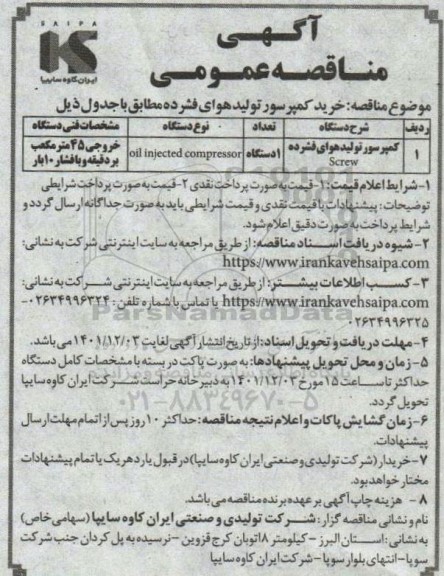 SAIPA
ایران کاوه سایپا
آگهی
مناقصه عمومی
موضوع مناقصه: خرید کمپرسور تولید هوای فشرده مطابق با جدول ذیل
ردیف شرح دستگاه تعداد نوع دستگاه مشخصات فنی دستگاه
۱ کمپرسور تولید هوای فشرده Screw ۱ دستگاه oil injected compressor خروجی ۴۵ متر مکعب بر دقیقه و با فشار ۱۰ بار
۱- شرایط اعلام قیمت: ۱-قیمت به صورت پرداخت نقدی ۲-قیمت به صورت پرداخت شرایطی
توضیحات: پیشنهادات با قیمت نقدی و قیمت شرایطی باید به صورت جداگانه ارسال گردد و
شرایط پرداخت به صورت دقیق اعلام شود.
۲- شیوه دریافت اسناد مناقصه: از طریق مراجعه به سایت اینترنتی شرکت به نشانی:
https://www.irankavehsaipa.com
۳- کسب اطلاعات بیشتر: از طریق مراجعه به سایت اینترنتی شرکت به نشانی:
https://www.irankavehsaipa.com یا تماس با شماره تلفن: ۰۲۶۳۴۹۹۶۳۲۴-
۰۲۶۳۴۹۹۶۳۲۵
۴- مهلت دریافت و تحویل اسناد: از تاریخ انتشار آگهی لغایت ۱۴۰۱/۱۲/۰۳ می باشد.
۵- زمان و محل تحویل پیشنهادها: به صورت پاکت در بسته با مشخصات کامل دستگاه
حداکثر تا ساعت ۱۵ مورخ ۱۴۰۱/۱۲/۰۳ به دبیرخانه حراست شرکت ایران کاوه سایپا
تحویل گردد.
۶- زمان گشایش پاکات و اعلام نتیجه مناقصه: حداکثر ۱۰ روز پس از اتمام مهلت ارسال
پیشنهادات.
۷- خریدار (شرکت تولیدی و صنعتی ایران کاوه سایپا) در قبول یا رد هر یک یا تمام پیشنهادات
مختار خواهد بود.
۸- هزینه چاپ آگهی بر عهده برنده مناقصه می باشد.
نام و نشانی مناقصه گزار: شرکت تولیدی و صنعتی ایران کاوه سایپا (سهامی خاص)
به نشانی: استان البرز - کیلومتر ۱۸ اتوبان کرج قزوین - نرسیده به پل کردان جنب شرکت
سوپا - انتهای بلوار سوپا - شرکت ایران کاوه سایپا
ParsNamadData
۰۲۱-۸۸۳۴۹۶۷۰-۵